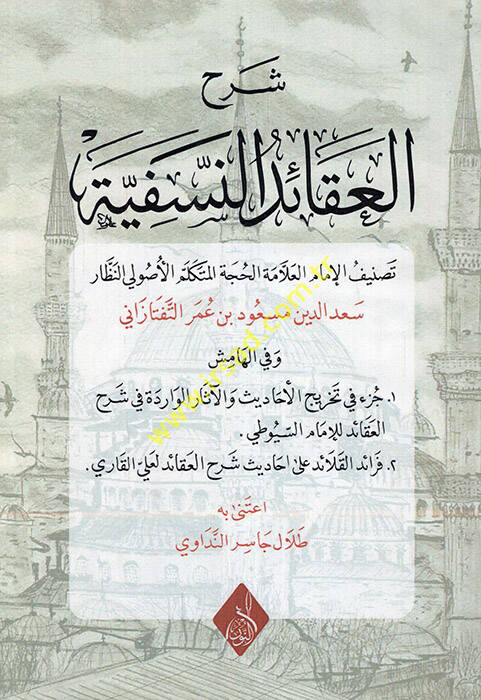 شرح
العقائد النسفية
تصنيف الإمام العلامة الحجة المتكلم الأصولي النظار
سعد الدين مسعود بن عمر التفتازاني
وفي الهامش
١. جزء في تخريج الأحاديث والآثار الواردة في شرح
العقائد للإمام السيوطي.
٢. فرائد القلائد على احاديث شرح العقائد لعلي القاري.
اعتنى به
طلال جاسر النداوي